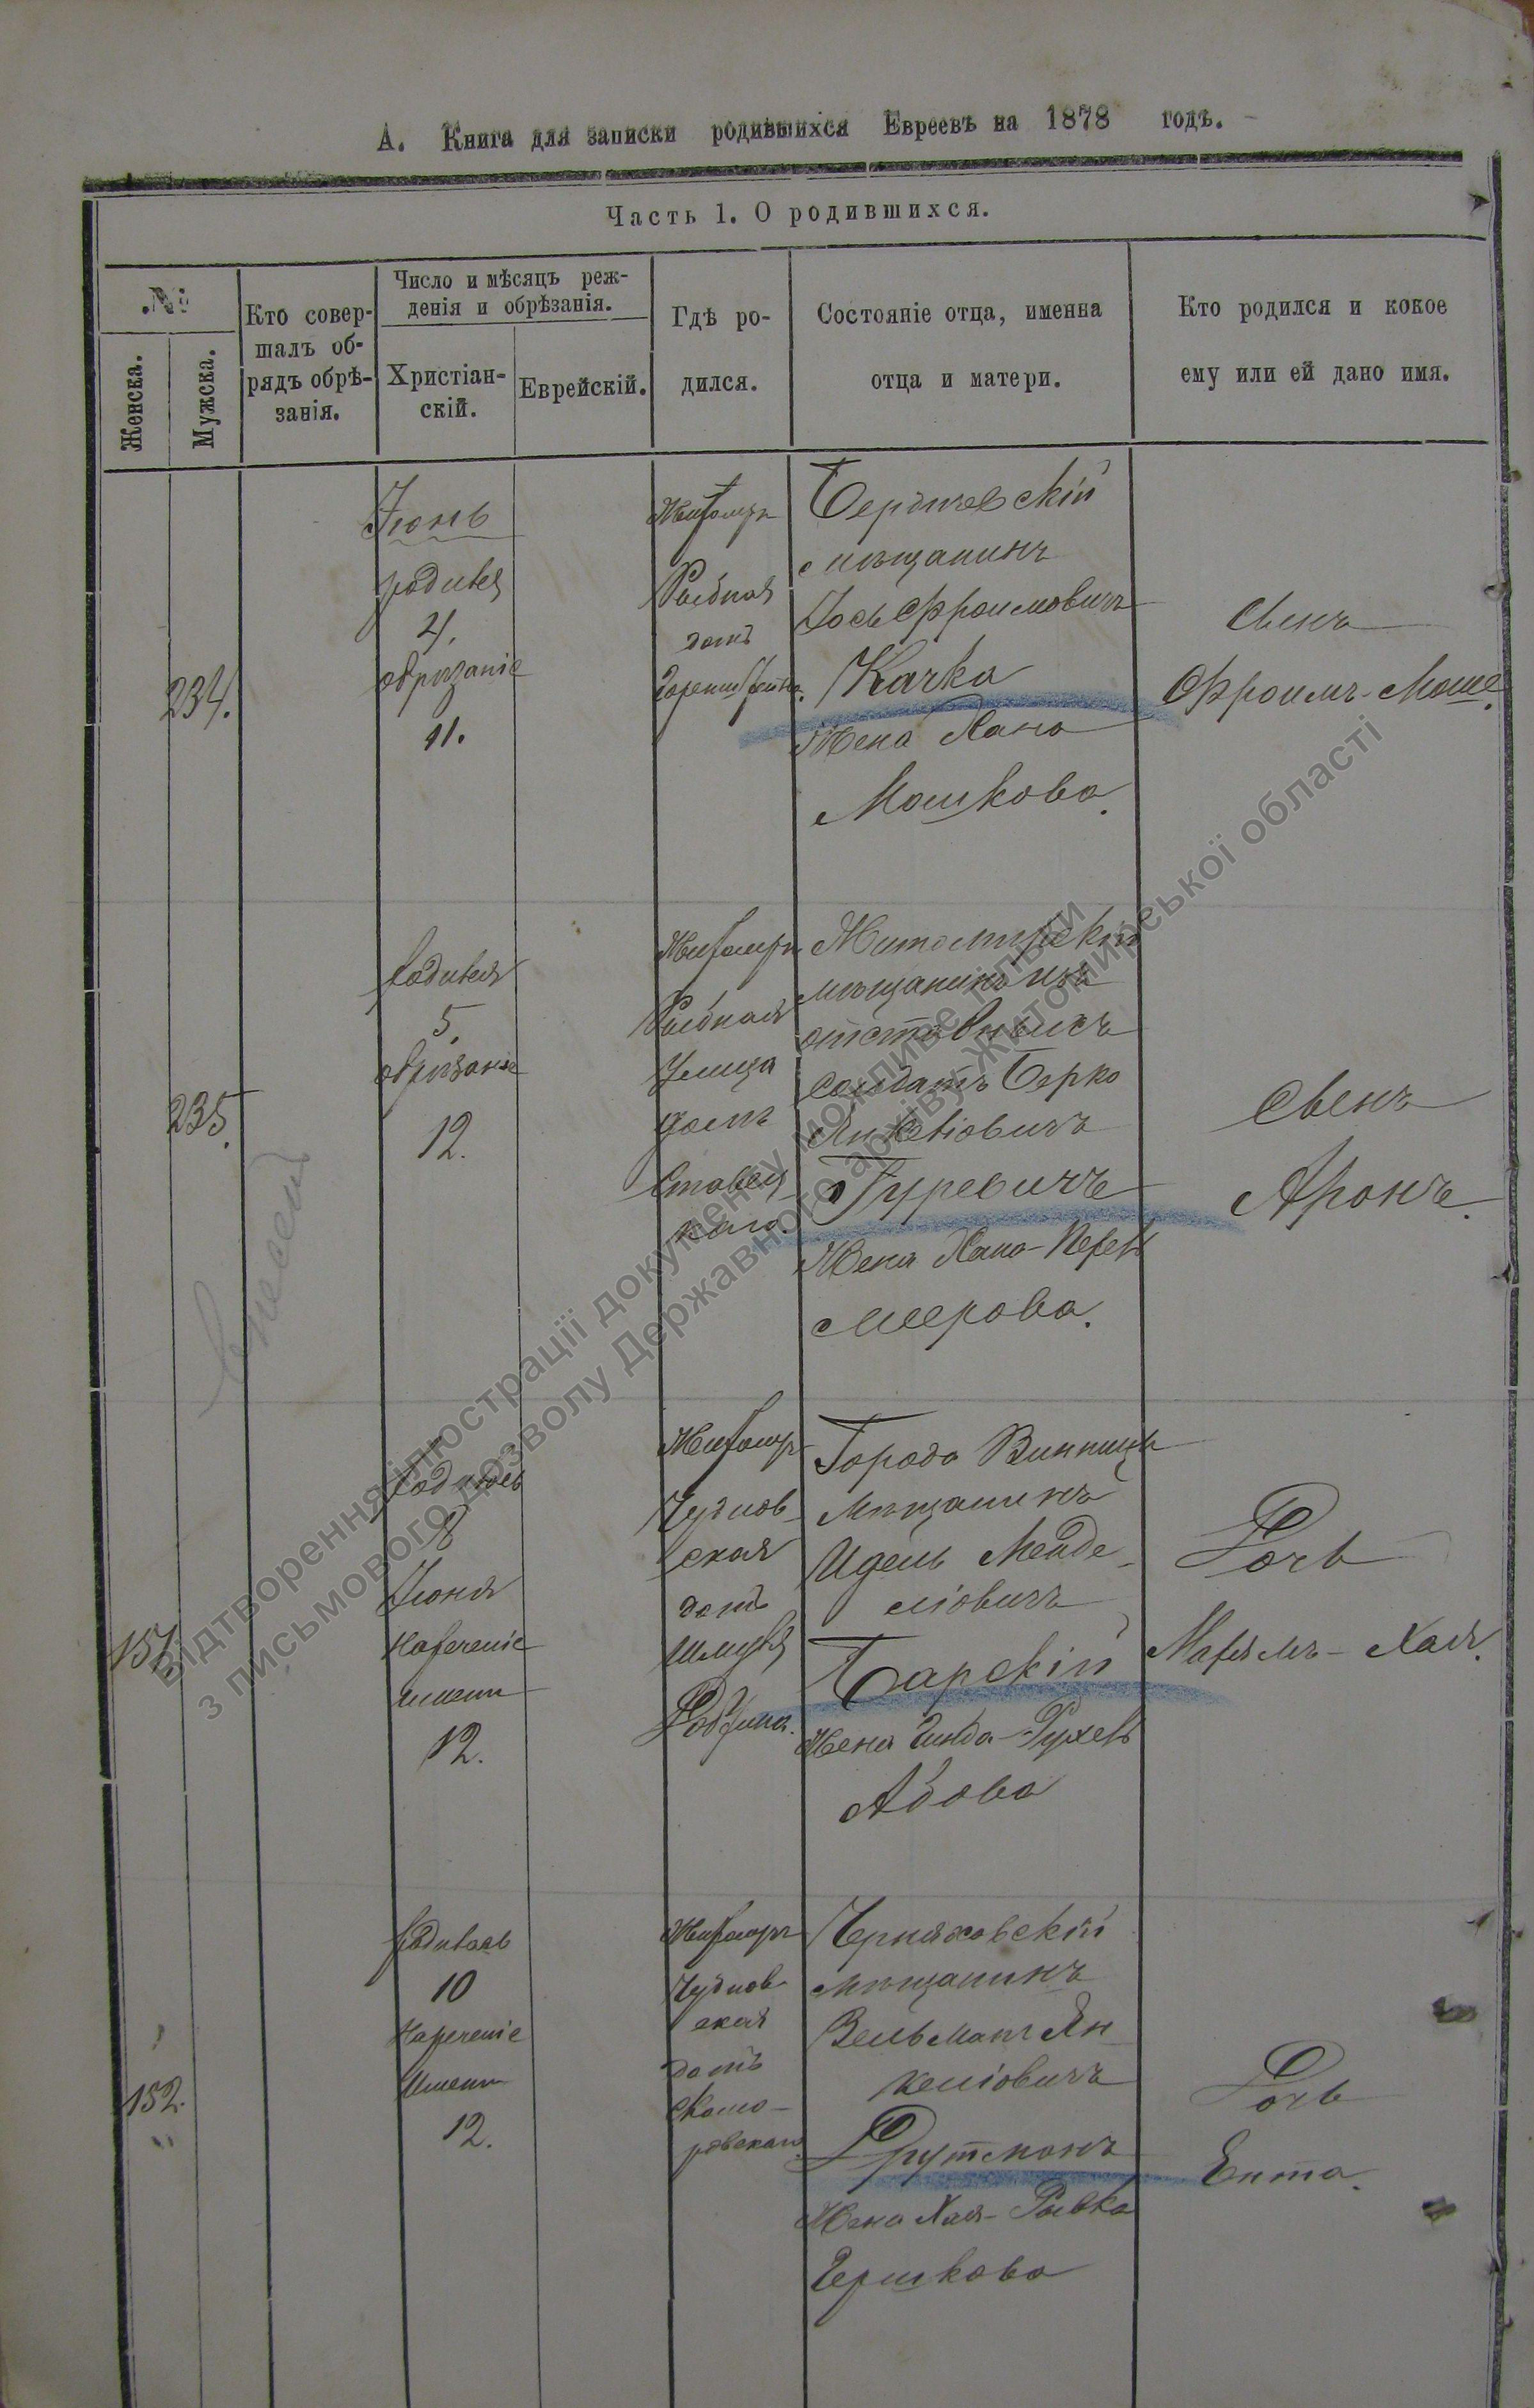 А. Книга для записки родившихся Евреевъ на 1878 годъ.
Часть 1. О родившихся.
№
Женска.
Мужска.
Кто совер-
шалъ об-
рядъ обрѣ-
занія.
Число и мѣсяцъ реж-
денія и обрѣзанія.
Христіан-
скій.
Еврейскій.
Гдѣ ро-
дился.
Состояніе отца, именна
отца и матери.
Кто родился и кокое
ему или ей дано имя.
234.
Іюнь
родився
4.
обрѣзаніе
11.
Житомръ
Рыбная
домъ
Бердичевскій
мѣщанинъ
Іось Фроимовичъ
Качка
Жена Хана
Мошкова.
Сынъ
Фроимъ-Моше.
235.
родився
5.
обрѣзаніе
12.
Житомръ
Рыбная
Улица
домъ
Житомирскій
мѣщанинъ изъ
отставныхъ
Солдатъ Берко
Янкеліовичъ
Гуревичъ
Жена Хана-Перль
Меерова.
Сынъ
Аронъ.
151.
родилась
8
Іюня
Нареченіе
имени
12.
Житомръ
Чуднов-
ская
домъ
Города Винницы
Мѣщанинъ
Идель Менде-
ліовичъ
Барскій
Жена Гинда-Рухель
Абова
Дочь
Марямъ-Хая.
152.
родилась
10
Нареченіе
Имени
12.
Житомръ
Чуднов-
ская
домъ
Скомо-
ровскаго.
Черняховскій
мѣщанинъ
Вельманъ Ян-
келіовичъ
Фрутманъ
Жена Хая-Рывка
Гершкова
Дочь
Ента.
Відтворення ілюстрації документу можливе тільки
з письмового дозволу Державного архіву Житомирської області